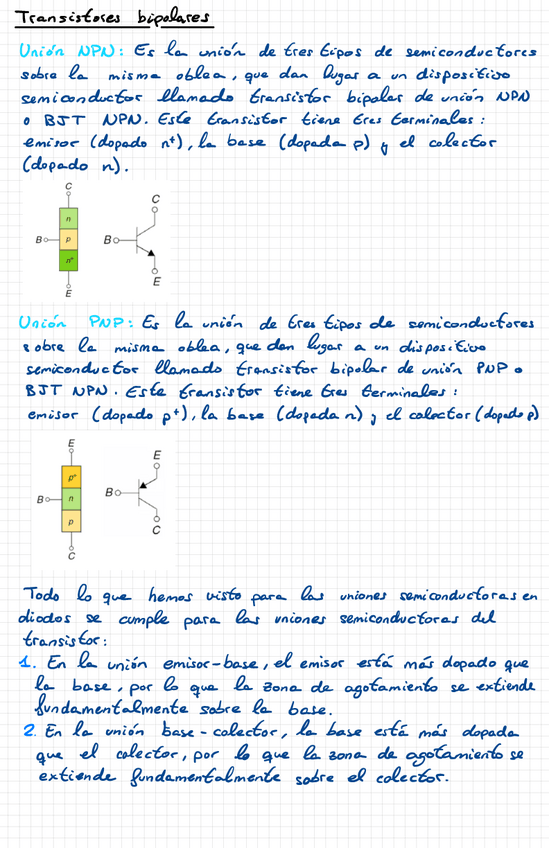 Transistores bipolares
Unión NPN: Es la unión de tres tipos de semiconductores
sobre la misma oblea, que dan lugar a un dispositivo
semiconductor llamado transistor bipolar de unión NPN
o BJT NPN. Este transistor tiene tres terminales:
emisor (dopado n+), la base (dopada p) y el colector
(dopado n).
C
n
B
p
n+
E
C
B
E
Unión PNP: Es la unión de tres tipos de semiconductores
sobre la misma oblea, que dan lugar a un dispositivo
semiconductor llamado transistor bipolar de unión PNP o
BJT NPN. Este transistor tiene tres terminales:
emisor (dopado p+), la base (dopada n) y el colector (dopado p)
E
p+
B
n
p
C
E
B
C
Todo lo que hemos visto para las uniones semiconductoras en
diodos se cumple para las uniones semiconductoras del
transistor:
1. En la unión emisor-base, el emisor está más dopado que
la base, por lo que la zona de agotamiento se extiende
fundamentalmente sobre la base.
2. En la unión base-colector, la base está más dopada
que el colector, por lo que la zona de agotamiento se
extiende fundamentalmente sobre el colector.